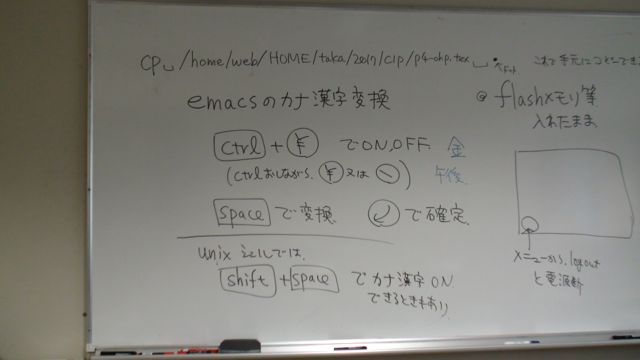 cp␣/home/web/HOME/taka/2017/clp/p4-ohp.tex␣
これで手元に
emacsのカナ漢字変換
Ctrl + ¥ でON,OFF 金
(Ctrlおしながら、¥又は\) 午後
space で変換 ↙で確定
unix シェルでは、
shift + space でカナ漢字ON
できるときもあり
@ flashメモリ等
入れたまま
メニューから、logout
と電源断